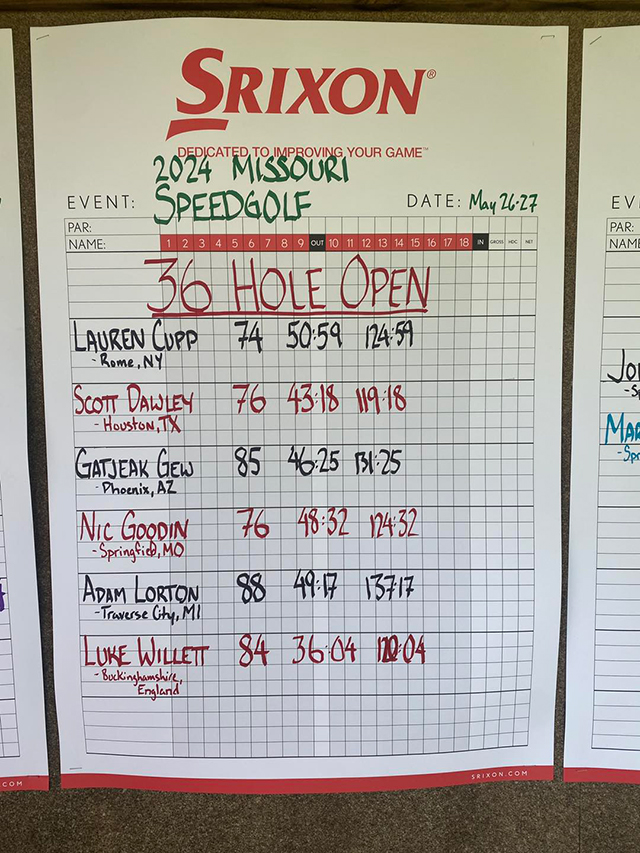 SRIXON®
DEDICATED TO IMPROVING YOUR GAME™
2024 MISSOURI
EVENT: SPEEDGOLF DATE: May 26-27
PAR:
NAME: 1 2 3 4 5 6 7 8 9 OUT 10 11 12 13 14 15 16 17 18 IN GROSS HDC NET
36 HOLE OPEN
LAUREN CUPP 74 50:59 124:59
- Rome, NY
SCOTT DAWLEY 76 43:18 119:18
- Houston, TX
GATJEAK GEW 85 46:25 131:25
- Phoenix, AZ
NIC GOODIN 76 48:32 124:32
- Springfield, MO
ADAM LORTON 88 49:17 137:17
- Traverse City, MI
LUKE WILLETT 84 36:04 120:04
- Buckinghamshire,
England
SRIXON.COM
.COM
PAR: